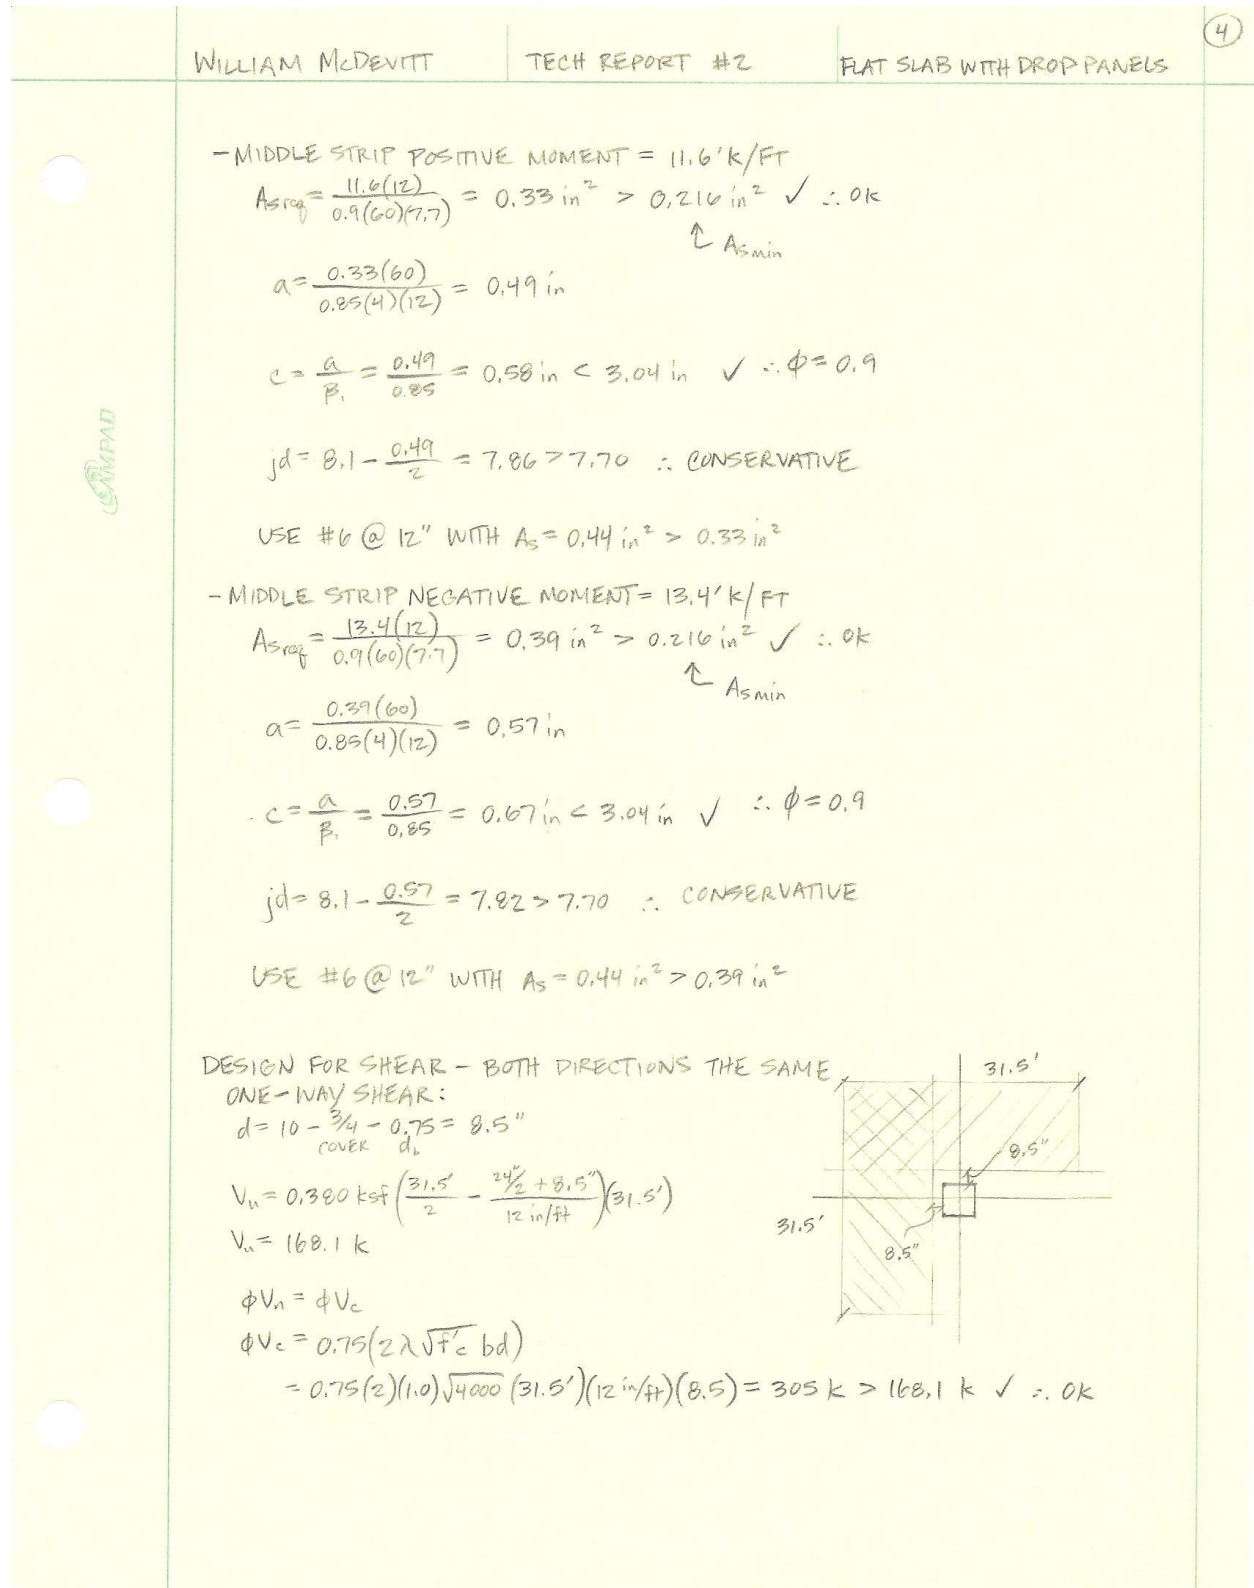 4
WILLIAM McDEVITT TECH REPORT #2 FLAT SLAB WITH DROP PANELS
- MIDDLE STRIP POSITIVE MOMENT = 11.6'k/FT
As req = 11.6(12) / 0.9(60)(7.7) = 0.33 in² > 0.216 in² ✓ ∴ OK
↑ As min
a = 0.33(60) / 0.85(4)(12) = 0.49 in
c = a/β₁ = 0.49/0.85 = 0.58 in < 3.04 in ✓ ∴ ϕ = 0.9
jd = 8.1 - 0.49/2 = 7.86 > 7.70 ∴ CONSERVATIVE
USE #6 @ 12" WITH As = 0.44 in² > 0.33 in²
- MIDDLE STRIP NEGATIVE MOMENT = 13.4'k/FT
As req = 13.4(12) / 0.9(60)(7.7) = 0.39 in² > 0.216 in² ✓ ∴ OK
↑ As min
a = 0.39(60) / 0.85(4)(12) = 0.57 in
c = a/β₁ = 0.57/0.85 = 0.67 in < 3.04 in ✓ ∴ ϕ = 0.9
jd = 8.1 - 0.57/2 = 7.82 > 7.70 ∴ CONSERVATIVE
USE #6 @ 12" WITH As = 0.44 in² > 0.39 in²
DESIGN FOR SHEAR - BOTH DIRECTIONS THE SAME
ONE-WAY SHEAR:
d = 10 - 3/4 - 0.75 = 8.5"
COVER db
Vu = 0.380 ksf (31.5'/2 - (24"/2 + 8.5")/(12 in/ft))(31.5')
Vu = 168.1 k
ϕVn = ϕVc
ϕVc = 0.75(2λ√f'c bd)
= 0.75(2)(1.0)√4000 (31.5')(12 in/ft)(8.5) = 305 k > 168.1 k ✓ ∴ OK
31.5'
8.5"
31.5'
8.5"
AMPAD